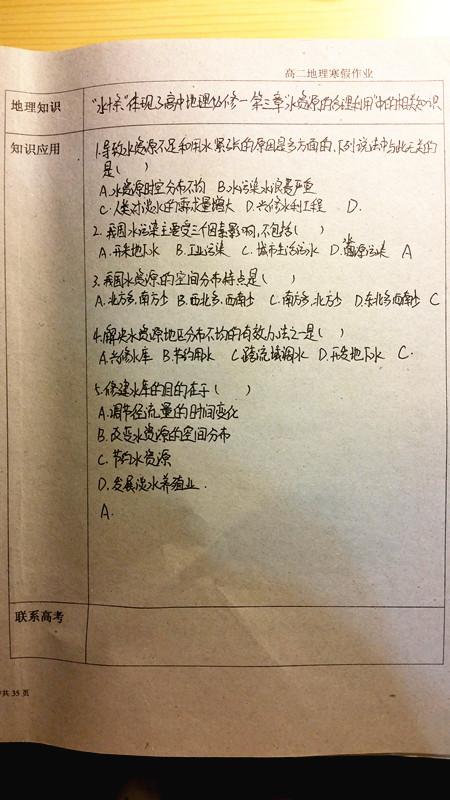 高二地理寒假作业
地理知识
"水体"体现了高中地理必修一第三章"水资源的合理利用"中的相关知识
知识应用
1.导致水资源不足和用水紧张的原因是多方面的,下列说法中与此无关的
是( )
A.水资源时空分布不均 B.水污染水浪费严重
C.人类对淡水的需求量增大 D.兴修水利工程 D.
2.我国水污染主要受三个因素影响,不包括( )
A.开采地下水 B.工业污染 C.城市生活污水 D.农业面源污染 A
3.我国水资源的空间分布特点是( )
A.北方多,南方少 B.西北多,西南少 C.南方多,北方少 D.东北多西南少 C
4.解决水资源地区分布不均的有效办法之一是( )
A.兴修水库 B.节约用水 C.跨流域调水 D.开发地下水 C.
5.修建水库的目的在于( )
A.调节径流量的时间变化
B.改变水资源的空间分布
C.节约水资源
D.发展淡水养殖业.
A.
联系高考
共 35 页